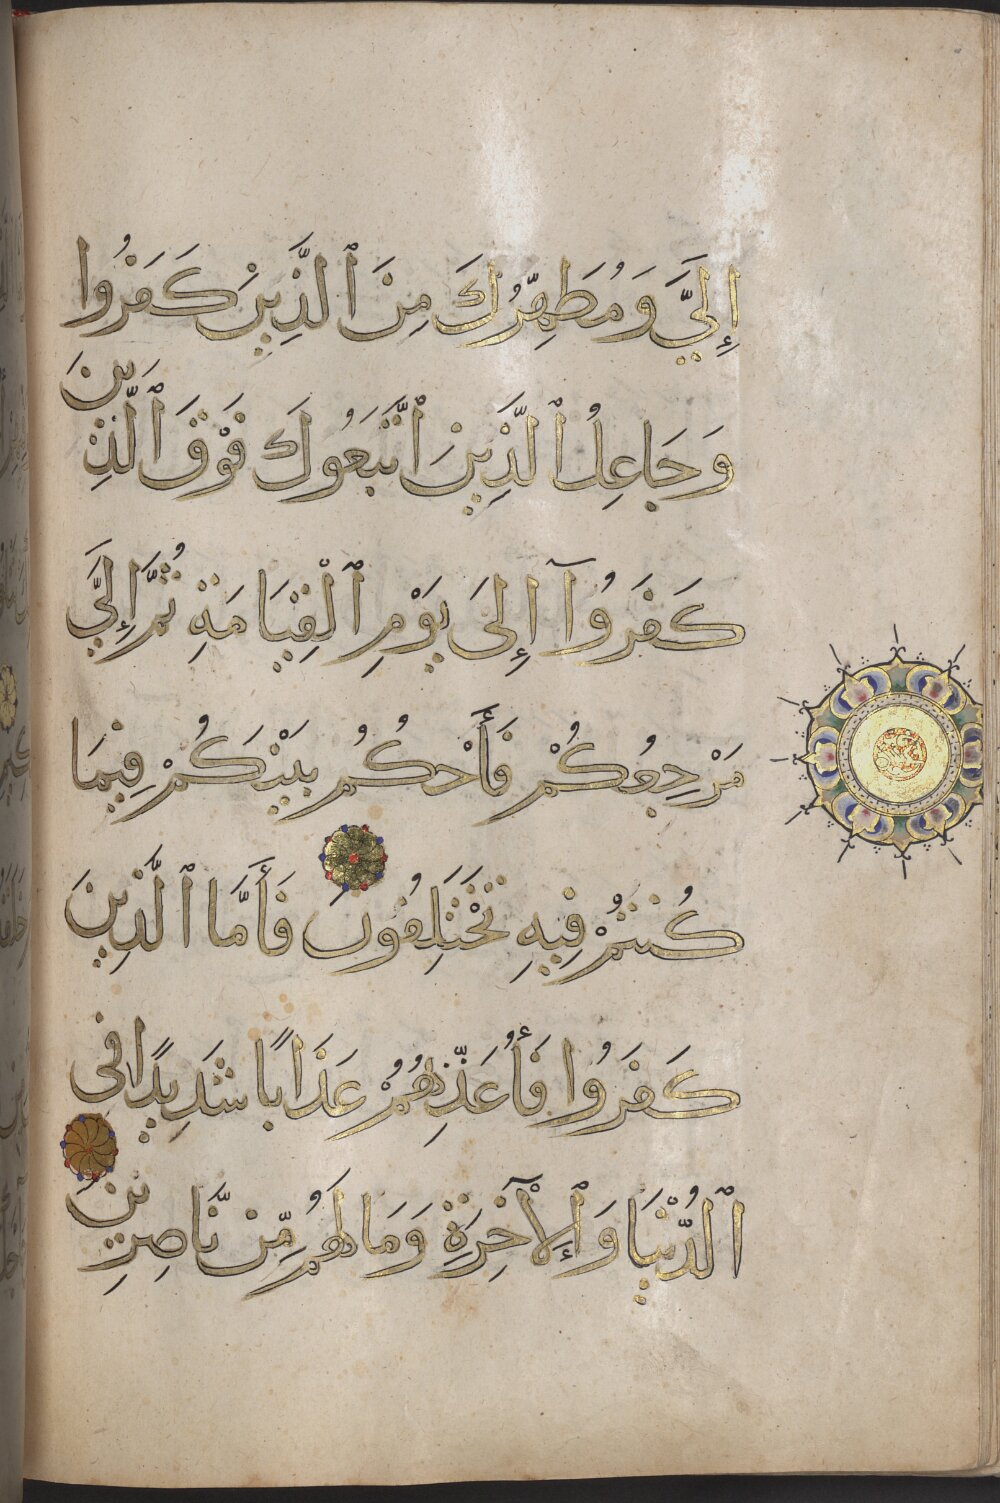 إِلَيَّ وَمُطَهِّرُكَ مِنَ ٱلَّذِينَ كَفَرُوا
وَجَاعِلُ ٱلَّذِينَ ٱتَّبَعُوكَ فَوْقَ ٱلَّذِينَ
كَفَرُوآ إِلَىَ يَوْمِ ٱلْقِيَامَةِ ثُمَّ إِلَيَّ
مَرْجِعُكُمْ فَأَحْكُمُ بَيْنَكُمْ فِيمَا
كُنتُمْ فِيهِ تَخْتَلِفُونَ فَأَمَّا ٱلَّذِينَ
كَفَرُوا فَأُعَذِّبُهُمْ عَذَابًا شَدِيدًا فِي
ٱلدُّنْيَا وَٱلْآخِرَةِ وَمَا لَهُم مِّن نَّاصِرِينَ